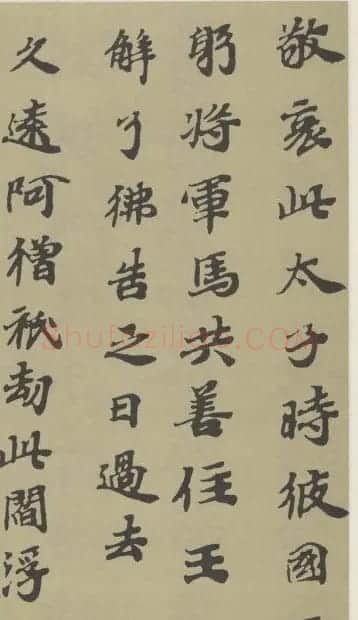 敬哀此太子時彼國
躬将軍馬共善住王
解了彿告之曰過去
久遠阿僧祇劫此閻浮